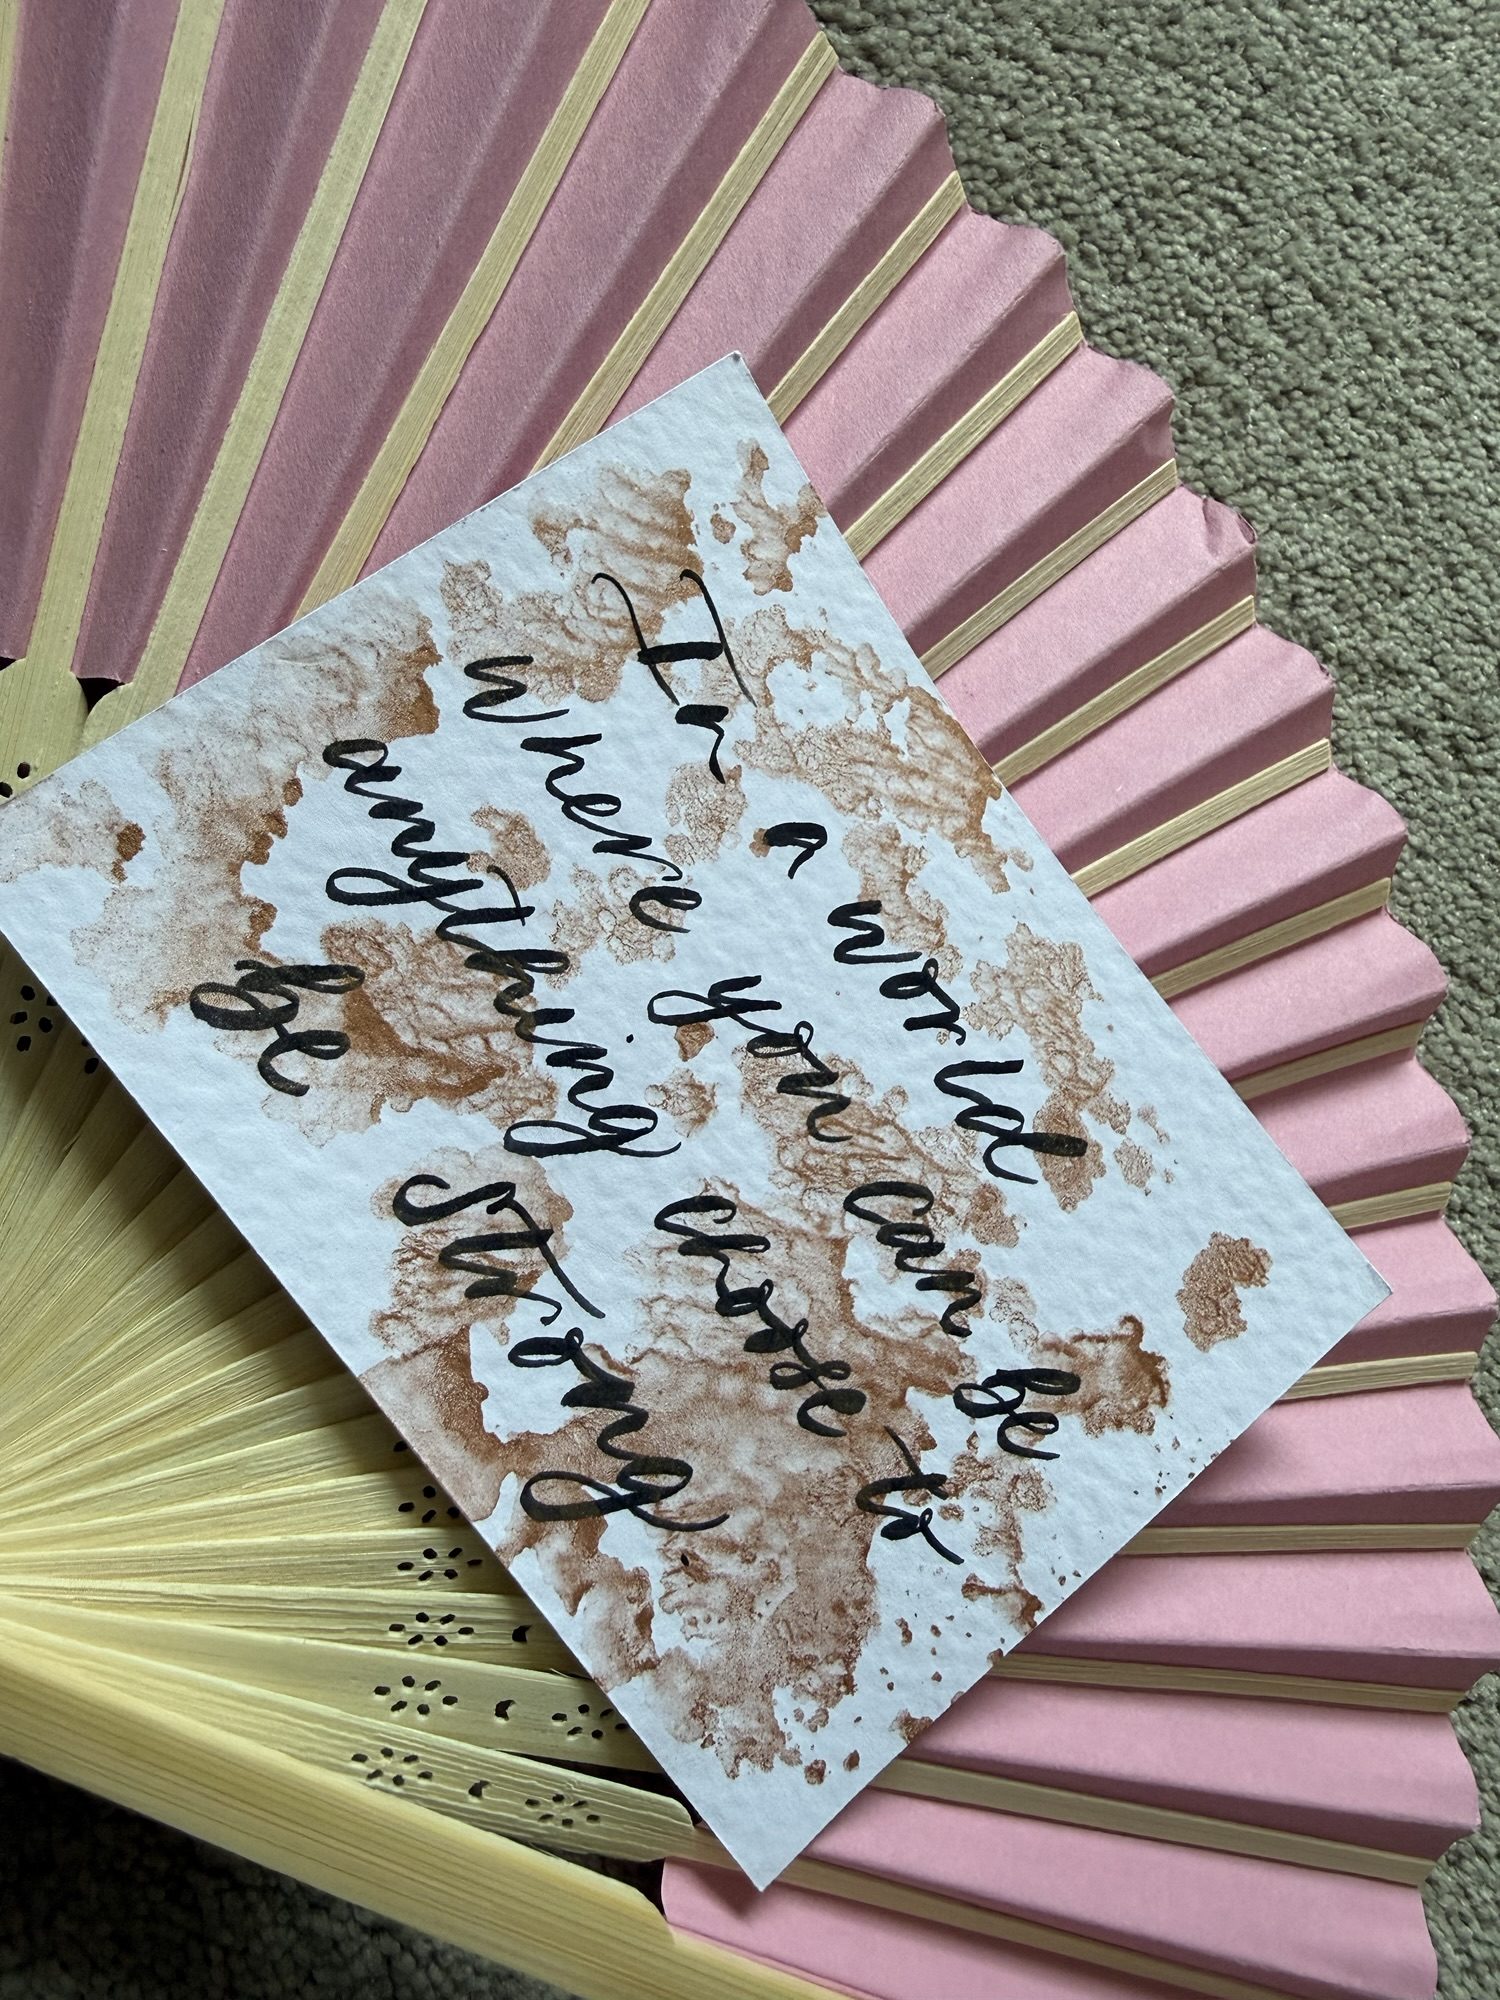 In a world
where you can be
anything choose to
be strong